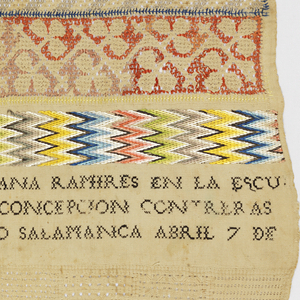 ANA RAMIRES EN LA ESCU
CONCEPCION CONTRERAS
O SALAMANCA ABRIL 7 DE